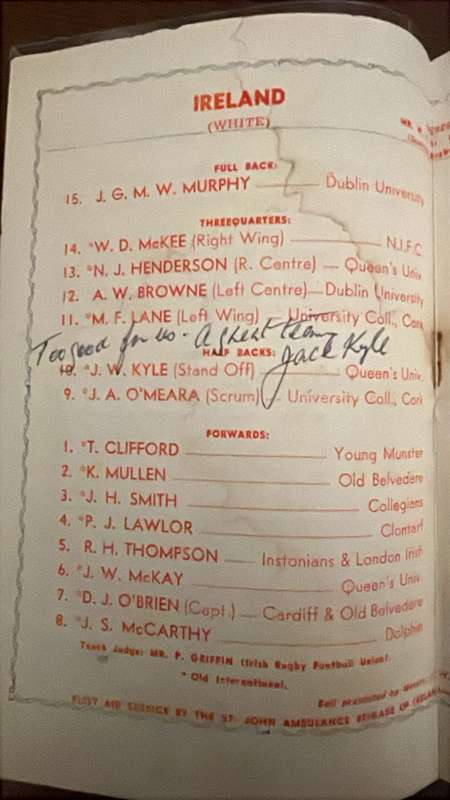 IRELAND
(WHITE)
FULL BACK:
15. J. G. M. W. MURPHY Dublin University
THREEQUARTERS:
14. *W. D. McKEE (Right Wing) N.I.F.C.
13. *N. J. HENDERSON (R. Centre) Queen's Univ.
12. A. W. BROWNE (Left Centre) Dublin University
11. *M. F. LANE (Left Wing) University Coll., Cork
Too good for us - A great team
Jack Kyle
HALF BACKS:
10. *J. W. KYLE (Stand Off) Queen's Univ.
9. *J. A. O'MEARA (Scrum) University Coll., Cork
FORWARDS:
1. *T. CLIFFORD Young Munster
2. *K. MULLEN Old Belvedere
3. *J. H. SMITH Collegians
4. *P. J. LAWLOR Clontarf
5. R. H. THOMPSON Instonians & London Irish
6. *J. W. McKAY Queen's Univ.
7. *D. J. O'BRIEN (Capt.) Cardiff & Old Belvedere
8. *J. S. McCARTHY Dolphin
Touch Judge: MR. P. GRIFFIN (Irish Rugby Football Union).
* Old International.
Ball presented by
FIRST AID SERVICE BY THE ST. JOHN AMBULANCE BRIGADE OF IRELAND